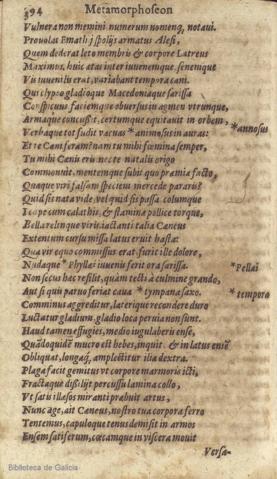 394 Metamorphoseon
Vulnera non memini numerum nomenq, notaui.
Prouolat Emathij spolijs armatus Alesi,
Quem dederat leto membris & corpore Latreus
Maximus, huic ætas inter iuuenemque, senemque
Vis iuuenilis erat, variabant tempora cani.
Qui clypeo gladioque Macedoniaque sarissa
Conspicuus, faciemque obuersus in agmen vtrunque,
Armaque concussit, certumque equitauit in orbem,
Verbaque tot fudit vacuas * animosus in auras: * annosus
Et te Cæni feram? nam tu mihi fœmina semper,
Tu mihi Cænis eris nec te natalis origo
Commonuit, mentemque subit quo præmia facto,
Quaque viri falsam speciem mercede pararis?
Quid sis nata vide, vel quid sis passa. columque
I cape cum calathis, & stamina pollice torque,
Bella relinque viris. iactanti talia Cæneus
Extentum cursu missa latus eruit hasta
Qua vir equo commissus erat. furit ille dolore,
Nudaque * Phyllæi iuuenis ferit ora sarissa. * Pellæi
Non secus hæc resilit, quam tecti à culmine grando,
Aut si quis paruo feriat caua * tympana saxo. * tempora
Comminus aggreditur, laterique recondere duro
Luctatur gladium. gladio loca peruia non sunt.
Haud tamen effugies, medio iugulaberis ense,
Quãdoquidẽ mucro est hebes, inquit. & in latus ensẽ
Obliquat, longaq, amplectitur ilia dextra.
Plaga facit gemitus vt corpore marmoris icti,
Fractaque dissilijt percusso lamina collo,
Vt satis illæsos miranti præbuit artus,
Nunc age, ait Cæneus, nostro tua corpora ferro
Tentemus, capuloque tenus demisit in armos
Ensem fatiferum, cæcamque in viscera mouit
Versa-
Biblioteca de Galicia